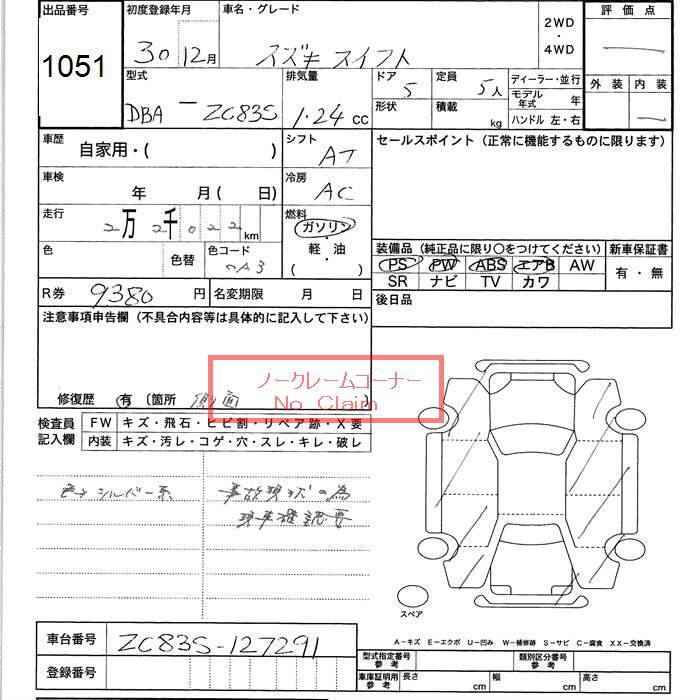 出品番号 初度登録年月 車名・グレード 2WD・4WD 評価点
1051 30 12月 スズキ スイフト
外装 内装
型式 排気量 ドア 定員 ディーラー・並行
DBA - ZC83S 1.24 cc 5 5人
モデル年式 年
形状 積載 kg ハンドル 左・右
車歴 シフト セールスポイント (正常に機能するものに限ります)
自家用・( ) AT
車検 冷房
年 月 ( 日) AC
走行 燃料
2万 2千 0 2 2 km ガソリン・軽・油
( )
色 色替 色コード
装備品 (純正品に限り○をつけてください) 新車保証書
PS PW ABS エアB AW
SR ナビ TV カワ
有・無
R券 9380 円 名変期限 月 日 後日品
注意事項申告欄 (不具合内容等は具体的に記入して下さい)
ノークレームコーナー
No Claim
修復歴 有 (箇所 側面 )
検査員記入欄 FW キズ・飛石・ヒビ割・リペア跡・X要
内装 キズ・汚レ・コゲ・穴・スレ・キレ・破レ
色々シルバー系 事故現状の為
現車確認要
スペア
車台番号 ZC83S-127291
登録番号
A-キズ E-エクボ U-凹み W-補修跡 S-サビ C-腐食 XX-交換済
型式指定番号 参考 類別区分番号 参考
車庫証明用 参考 長さ cm 幅 cm 高さ cm